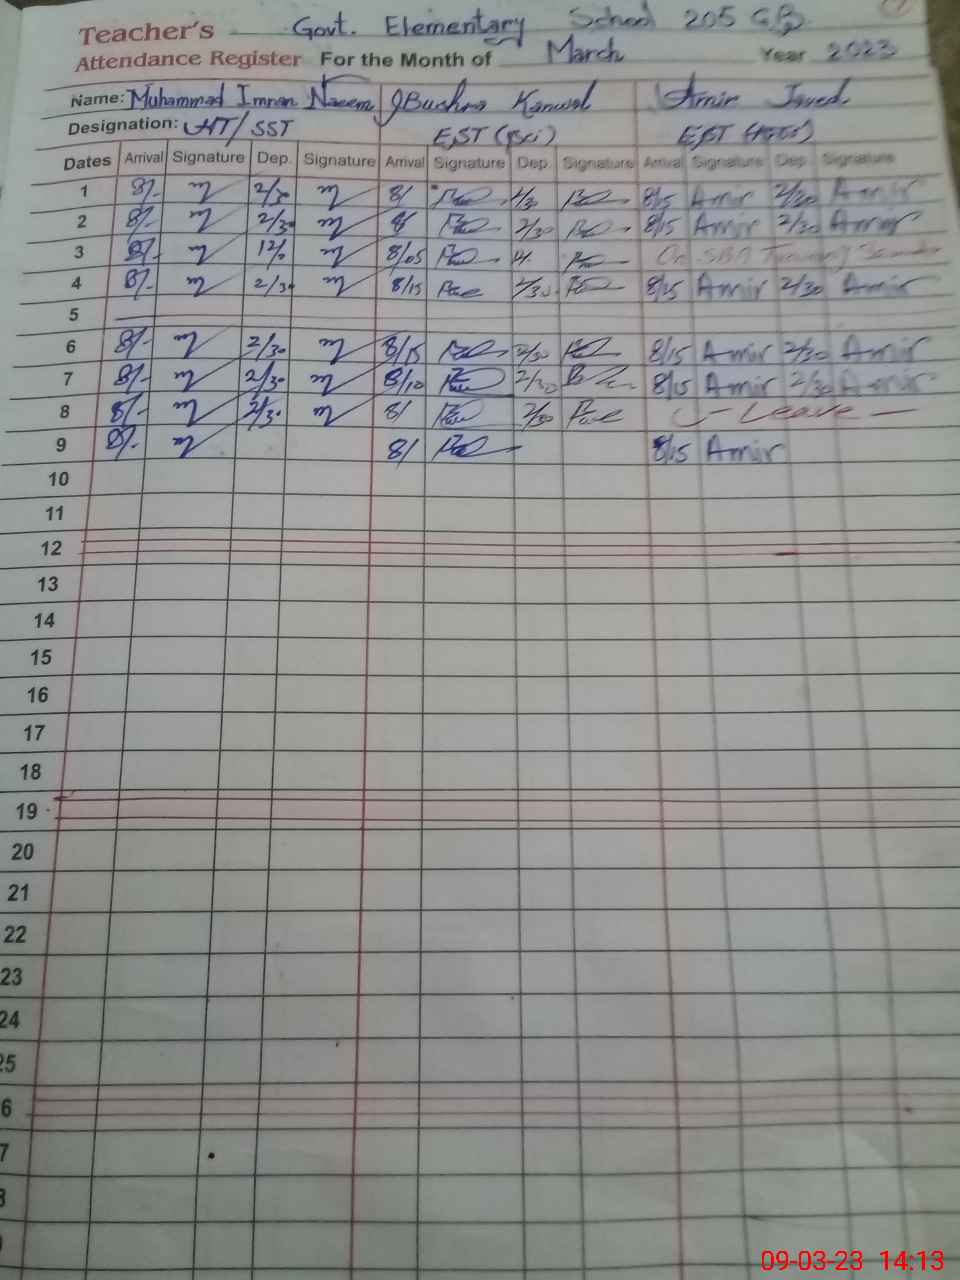 Teacher's Govt. Elementary School 205 GB
Attendance Register For the Month of March Year 2023
Name: Muhammad Imran Naeem Bushra Kanwal Amir Javed
Designation: HT/SST EST (Sci) EST
Dates Arrival Signature Dep. Signature Arrival Signature Dep. Signature Arrival Signature Dep. Signature
1 8/- 2/30 8/ 8/15 Amir 2/30 Amir
2 8/- 2/30 8/ 2/30 8/15 Amir 2/30 Amir
3 8/- 12/. 8/05 On SBA Training
4 8/- 2/30 8/15 2/30 8/15 Amir 2/30 Amir
5
6 8/- 2/30 8/15 2/30 8/15 Amir 2/30 Amir
7 8/- 2/30 8/10 2/30 8/15 Amir 2/30 Amir
8 8/- 2/30 8/ 2/30 - Leave -
9 8/- 8/ 8/15 Amir
10
11
12
13
14
15
16
17
18
19
20
21
22
23
24
25
6
7
09-03-23 14:13